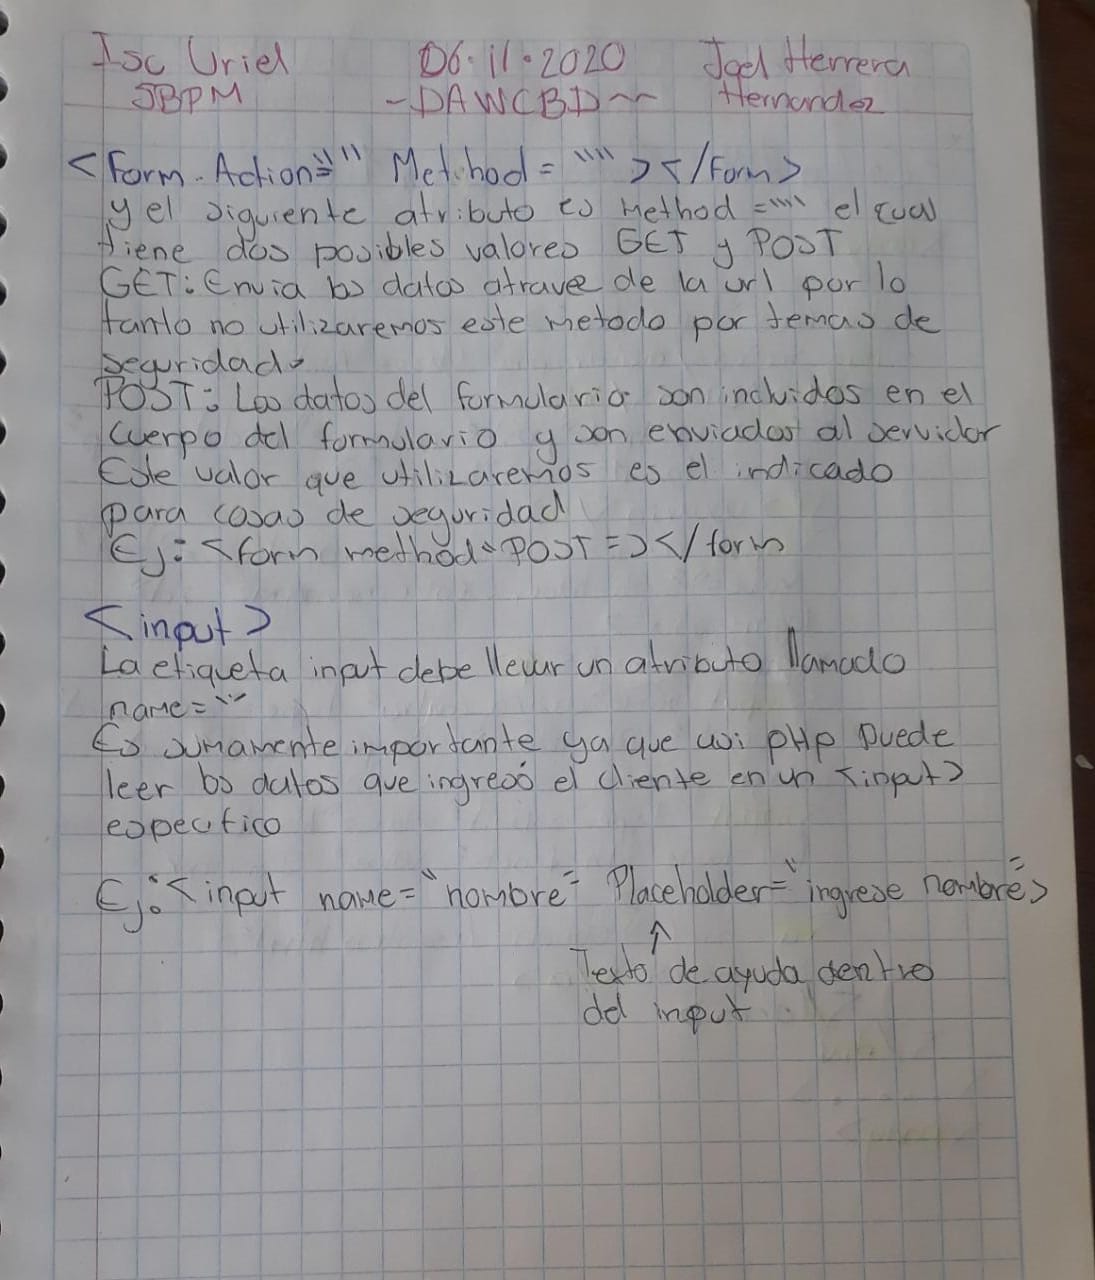 Isc Uriel 06.11.2020 Joel Herrera
JBPM -DAWCBD~ Hernandez
<Form Action="" Method = "" ></Form>
y el siguiente atributo es Method ="" el cual
tiene dos posibles valores GET y POST
GET: Envia los datos atravez de la url por lo
tanto no utilizaremos este metodo por temas de
seguridad.
POST: Los datos del formulario son incluidos en el
cuerpo del formulario y son enviados al servidor
Este valor que utilizaremos es el indicado
para cosas de seguridad
Ej: <form method="POST"></form
<input>
La etiqueta input debe llevar un atributo llamado
name=""
Es sumamente importante ya que asi pHp puede
leer los datos que ingresó el cliente en un <input>
especifico
Ej: <input name="nombre" Placeholder="ingrese nombre">
Texto de ayuda dentro
del input